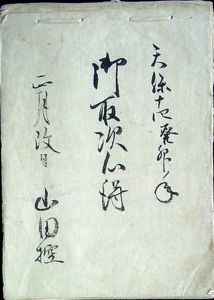 天保十四癸卯年
御取次心得
正月改
山田控